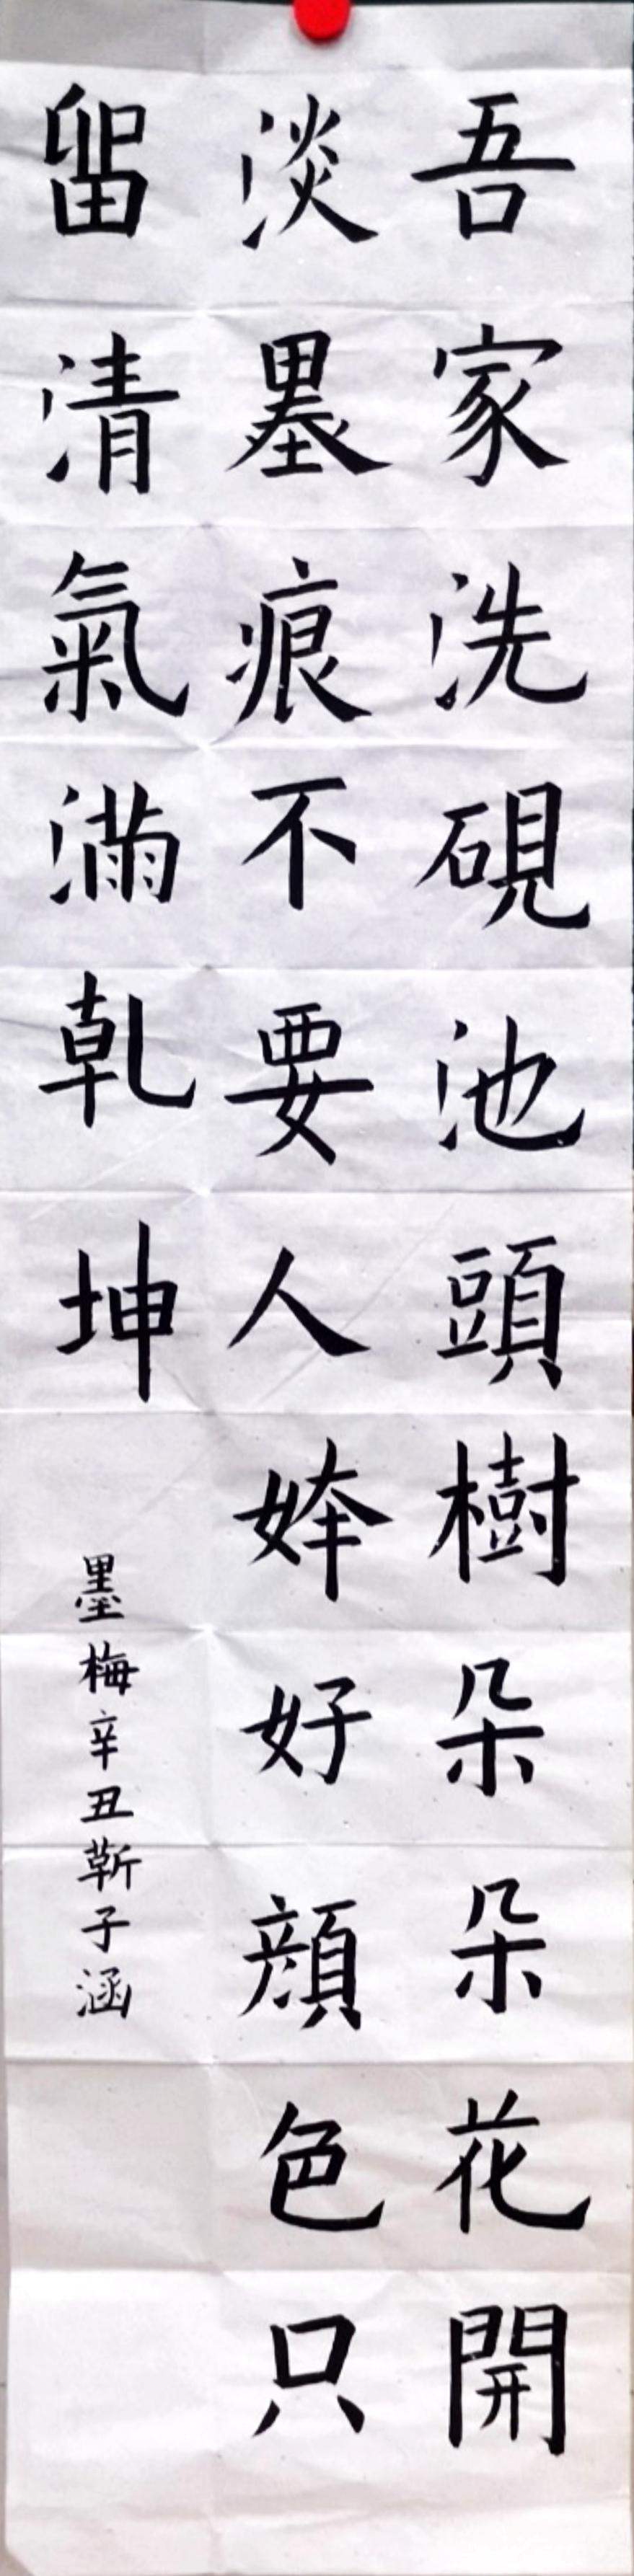 吾家洗硯池頭樹朵朵花開
淡墨痕不要人姱好顔色只
留清氣滿乾坤
墨梅辛丑靳子涵